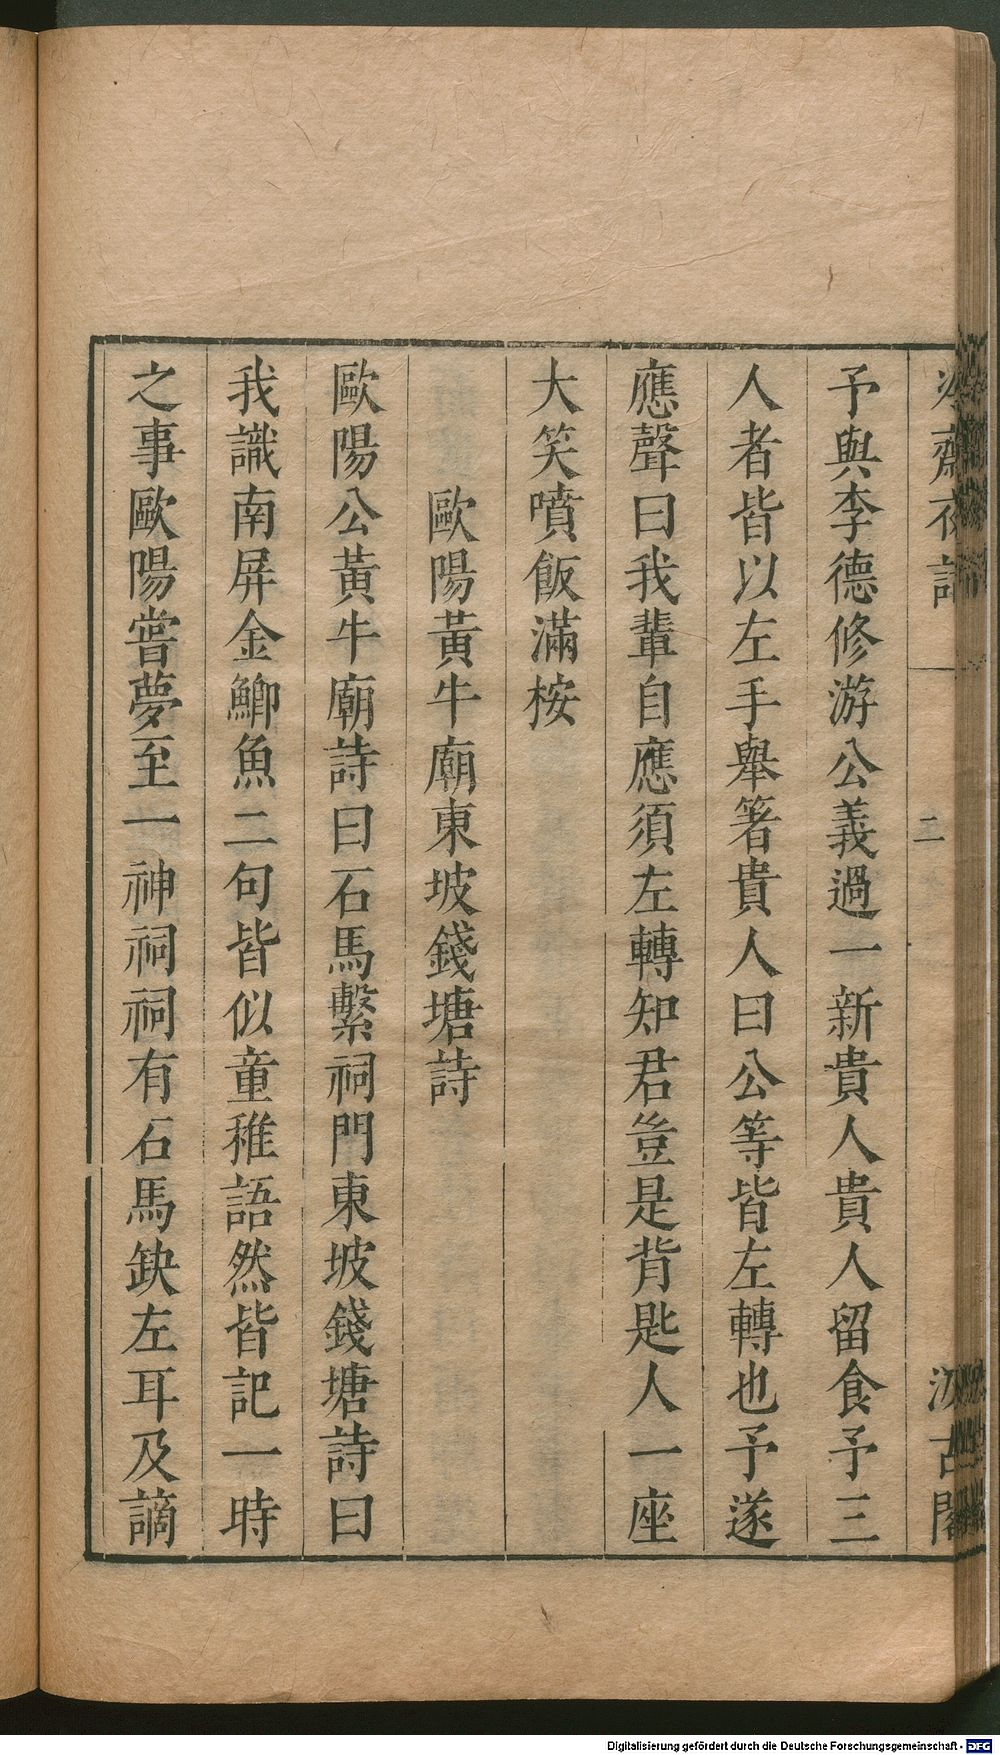 冷齋夜話 二 汲古閣
予與李德修游公義過一新貴人貴人留食予三
人者皆以左手舉箸貴人曰公等皆左轉也予遂
應聲曰我輩自應須左轉知君豈是背匙人一座
大笑噴飯滿桉
歐陽黃牛廟東坡錢塘詩
歐陽公黃牛廟詩曰石馬繫祠門東坡錢塘詩曰
我識南屏金鯽魚二句皆似童稚語然皆記一時
之事歐陽嘗夢至一神祠祠有石馬缺左耳及謫
Digitalisierung gefördert durch die Deutsche Forschungsgemeinschaft - DFG